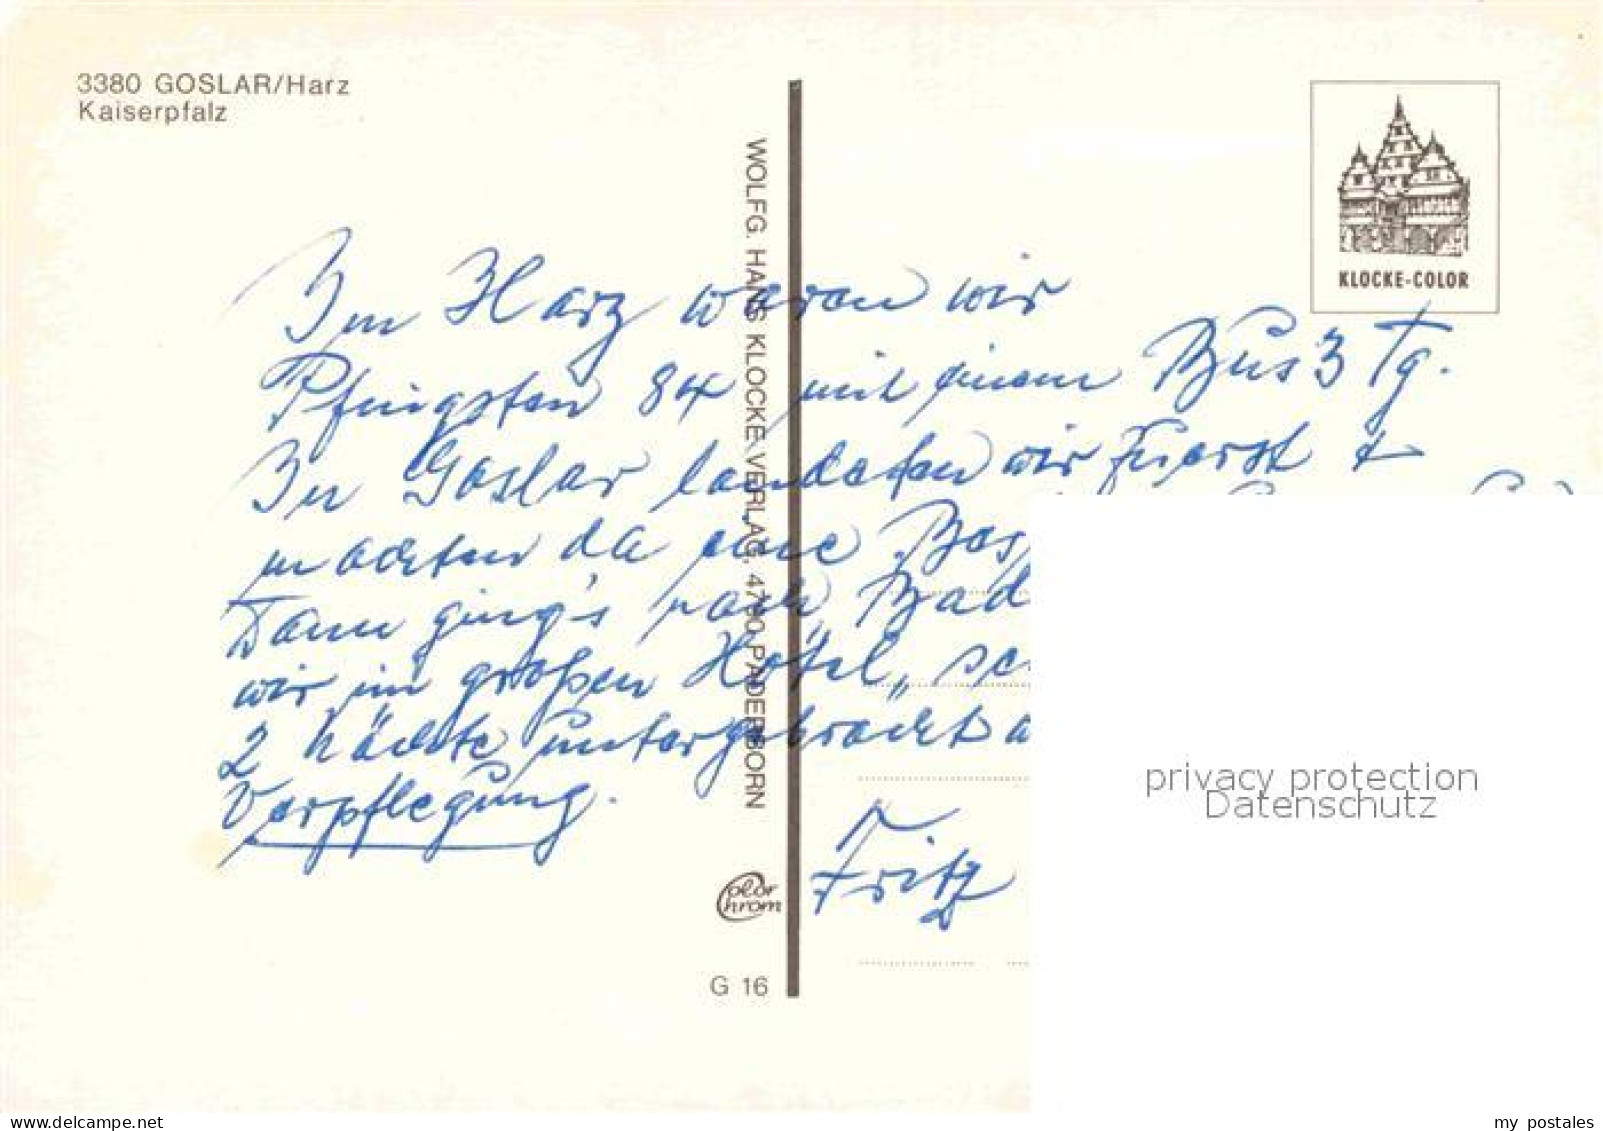 3380 GOSLAR/Harz
Kaiserpfalz
KLOCKE-COLOR
WOLFG. HANS KLOCKE VERLAG, 4790 PADERBORN
Im Harz waren wir
Pfingsten 84 mit einem Bus 3 Tg.
In Goslar landeten wir zuerst +
machten da eine
Dann ging's nach Bad
wir im großen Hotel „
2 Nächte untergebracht
Verpflegung.
Fritz
Color Chrom
G 16
privacy protection
Datenschutz
delcampe.net
my_postales